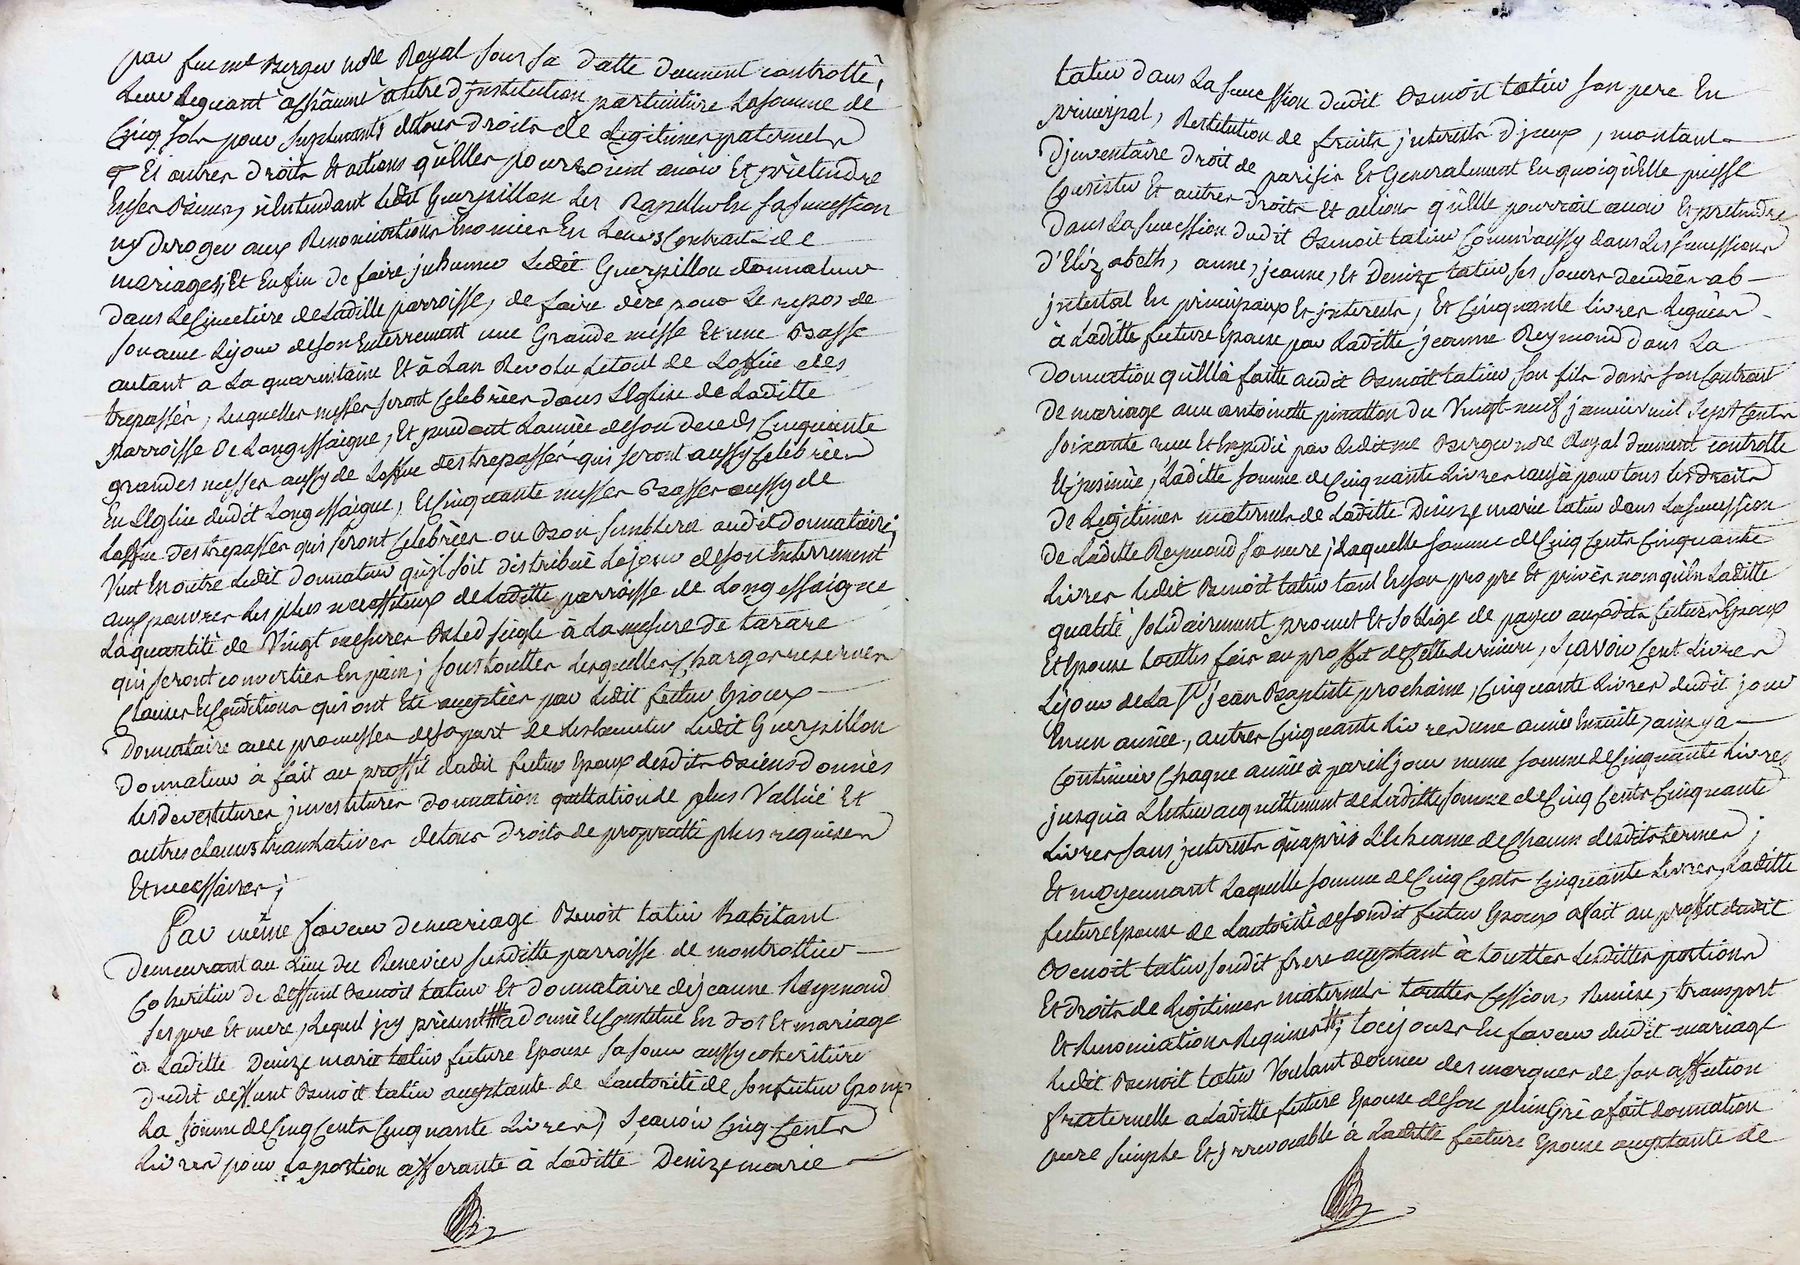 par feu me Berger nore Royal sous sa datte deument controllé,
Leur leguant a chacune a titre d'Institution particuliere La somme de
Cinq sols pour suplements detous droits de Legitimes paternels
Et autres droits et actions qu'Elles pourroient avoir Et prétendre
En ses Biens, n'entendant Ledit Guerpillon Les Rapeller En sa succession
ny deroger aux Renonciations Enoncées En Leurs Contrats de
mariages, Et Enfin de faire inhumer Ledit Guerpillon donnateur
dans Le Cimetiere de Laditte parroisse, de faire dire pour Le repos de
son ame Le jour de son Enterrement une Grande messe Et une Basse
autant a La quarantaine Et à Lan Revolu, Le tout de Loffice des
trepassés, Lesquelles messes seront Celebrées dans L'Eglise de Laditte
Parroisse de Longessaigne, Et pendant L'année de son deceds Cinquante
grandes messes aussy de Loffice des trepassés qui seront aussy Celebrées
En L'Eglise dudit Longessaigne, Et Cinquante messes Basses aussy de
Loffice des trepassés qui seront Celebrées ou Bon semblera audit donnataire;
Veut En outre Ledit donnateur qu'il soit distribué Le jour de son Enterrement
aux pauvres Les plus necessiteux de Laditte parroisse de Longessaigne
La quantité de Vingt mesures Bled seigle à La mesure de tarare
qui seront converties En pain; sous touttes Lesquelles Charges reserves
Clauses Et Conditions qui ont Eté acceptées par Ledit futur Epoux
Donnataire avec promesses de sa part de Les Ledit Guerpillon
Donnateur à fait au proffit dudit futur Epoux desdits Biens donnés
Les devestitures investitures donnation quittation de plus Vallüe Et
autres clauses translatives de tous droits de proprietté plus requises
Et necessaires;
Par même faveur de mariage Benoit tatin habitant
demeurant au Lieu du Renevier susditte parroisse de montrottier
Coheritier de deffunt Benoit tatin Et donnataire de jeanne Reymond
ses pere Et mere, Lequel icy présent a donné Et Constitué En dot Et mariage
à Laditte Denize marie tatin future Epouse sa soeur aussy coheritiere
dudit deffunt Benoit tatin acceptante de L'autorité de son futur Epoux
La somme de Cinq Cents Cinquante Livres, sçavoir Cinq Cents
Livres pour La portion afferante à Laditte Denize marie
tatin dans La succession dudit Benoit tatin son pere En
principal, Restitution de fruits, interests d'iceux, montant
d'inventaire droit de parisis Et Generalement En quoi qu'Elle puisse
Consister Et autres droits Et actions qu'Elle pourroit avoir Et pretendre
dans La succession dudit Benoit tatin Comm'aussy dans Les successions
d'Elizabeth, anne, jeanne, Et Denize tatin ses soeurs decedées ab-
intestat En principaux Et interests, Et Cinquante Livres Leguées
à Laditte future Epouse par Laditte jeanne Reymond dans La
donnation qu'Ella faitte audit Benoit tatin son fils dans son Contrat
de mariage avec antoinette pinatton du Vingt neuf janvier mil sept Cents
soixante Et Expedié par Ledit me Berger nore Royal deument controllé
Et insinué, Laditte somme de Cinquante Livres pour tous Les droits
de Legitimes maternels de Laditte Denize marie tatin dans La succession
de Laditte Reymond sa mere; Laquelle somme de Cinq Cents Cinquante
Livres Ledit Benoit tatin tant En son propre Et privés nom qu'En Laditte
qualité solidairement promet Et s'oblige de payer auxdits futurs Epoux
Et Epouse touttes fois au proffit de Cette derniere, sçavoir Cent Livres
Le jour de La St jean Baptiste prochaine, Cinquante Livres dudit jour
En un année, autres Cinquante Livres d'une année Ensuite, ainsy a
Continuer Chaque année à pareil jour même somme de Cinquante Livres
jusqu'à L'Entier acquittement de Laditte somme de Cinq Cents Cinquante
Livres sans interests qu'apres L'Echeance de Chacun desdits termes;
Et moyennant Laquelle somme de Cinq Cents Cinquante Livres, Laditte
future Epouse de L'autorité de sondit futur Epoux à fait au proffit dudit
Benoit tatin sondit frere acceptant à touttes Lesdittes portions
Et droits de Legitimes maternels touttes Cession, Remise, transport
Et Renonciations Requises; toujours En faveur dudit mariage
Ledit Benoit tatin Voulant donner des marques de son affection
fraternelle a Laditte future Epouse de son plein Gré a fait donnation
pure simple Et irrevocable à Laditte future Epouse acceptante de